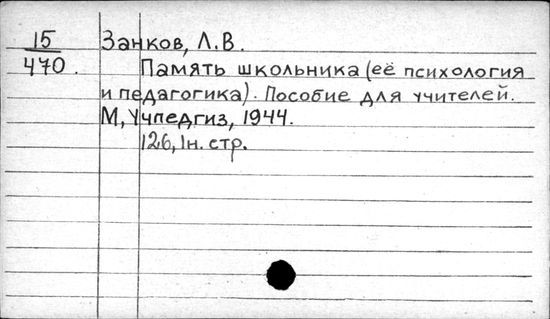 15 Занков, Л.В.
470. Память школьника (её психология
и педагогика). Пособие для учителей.
М, Учпедгиз, 1944.
126, 1н. стр.